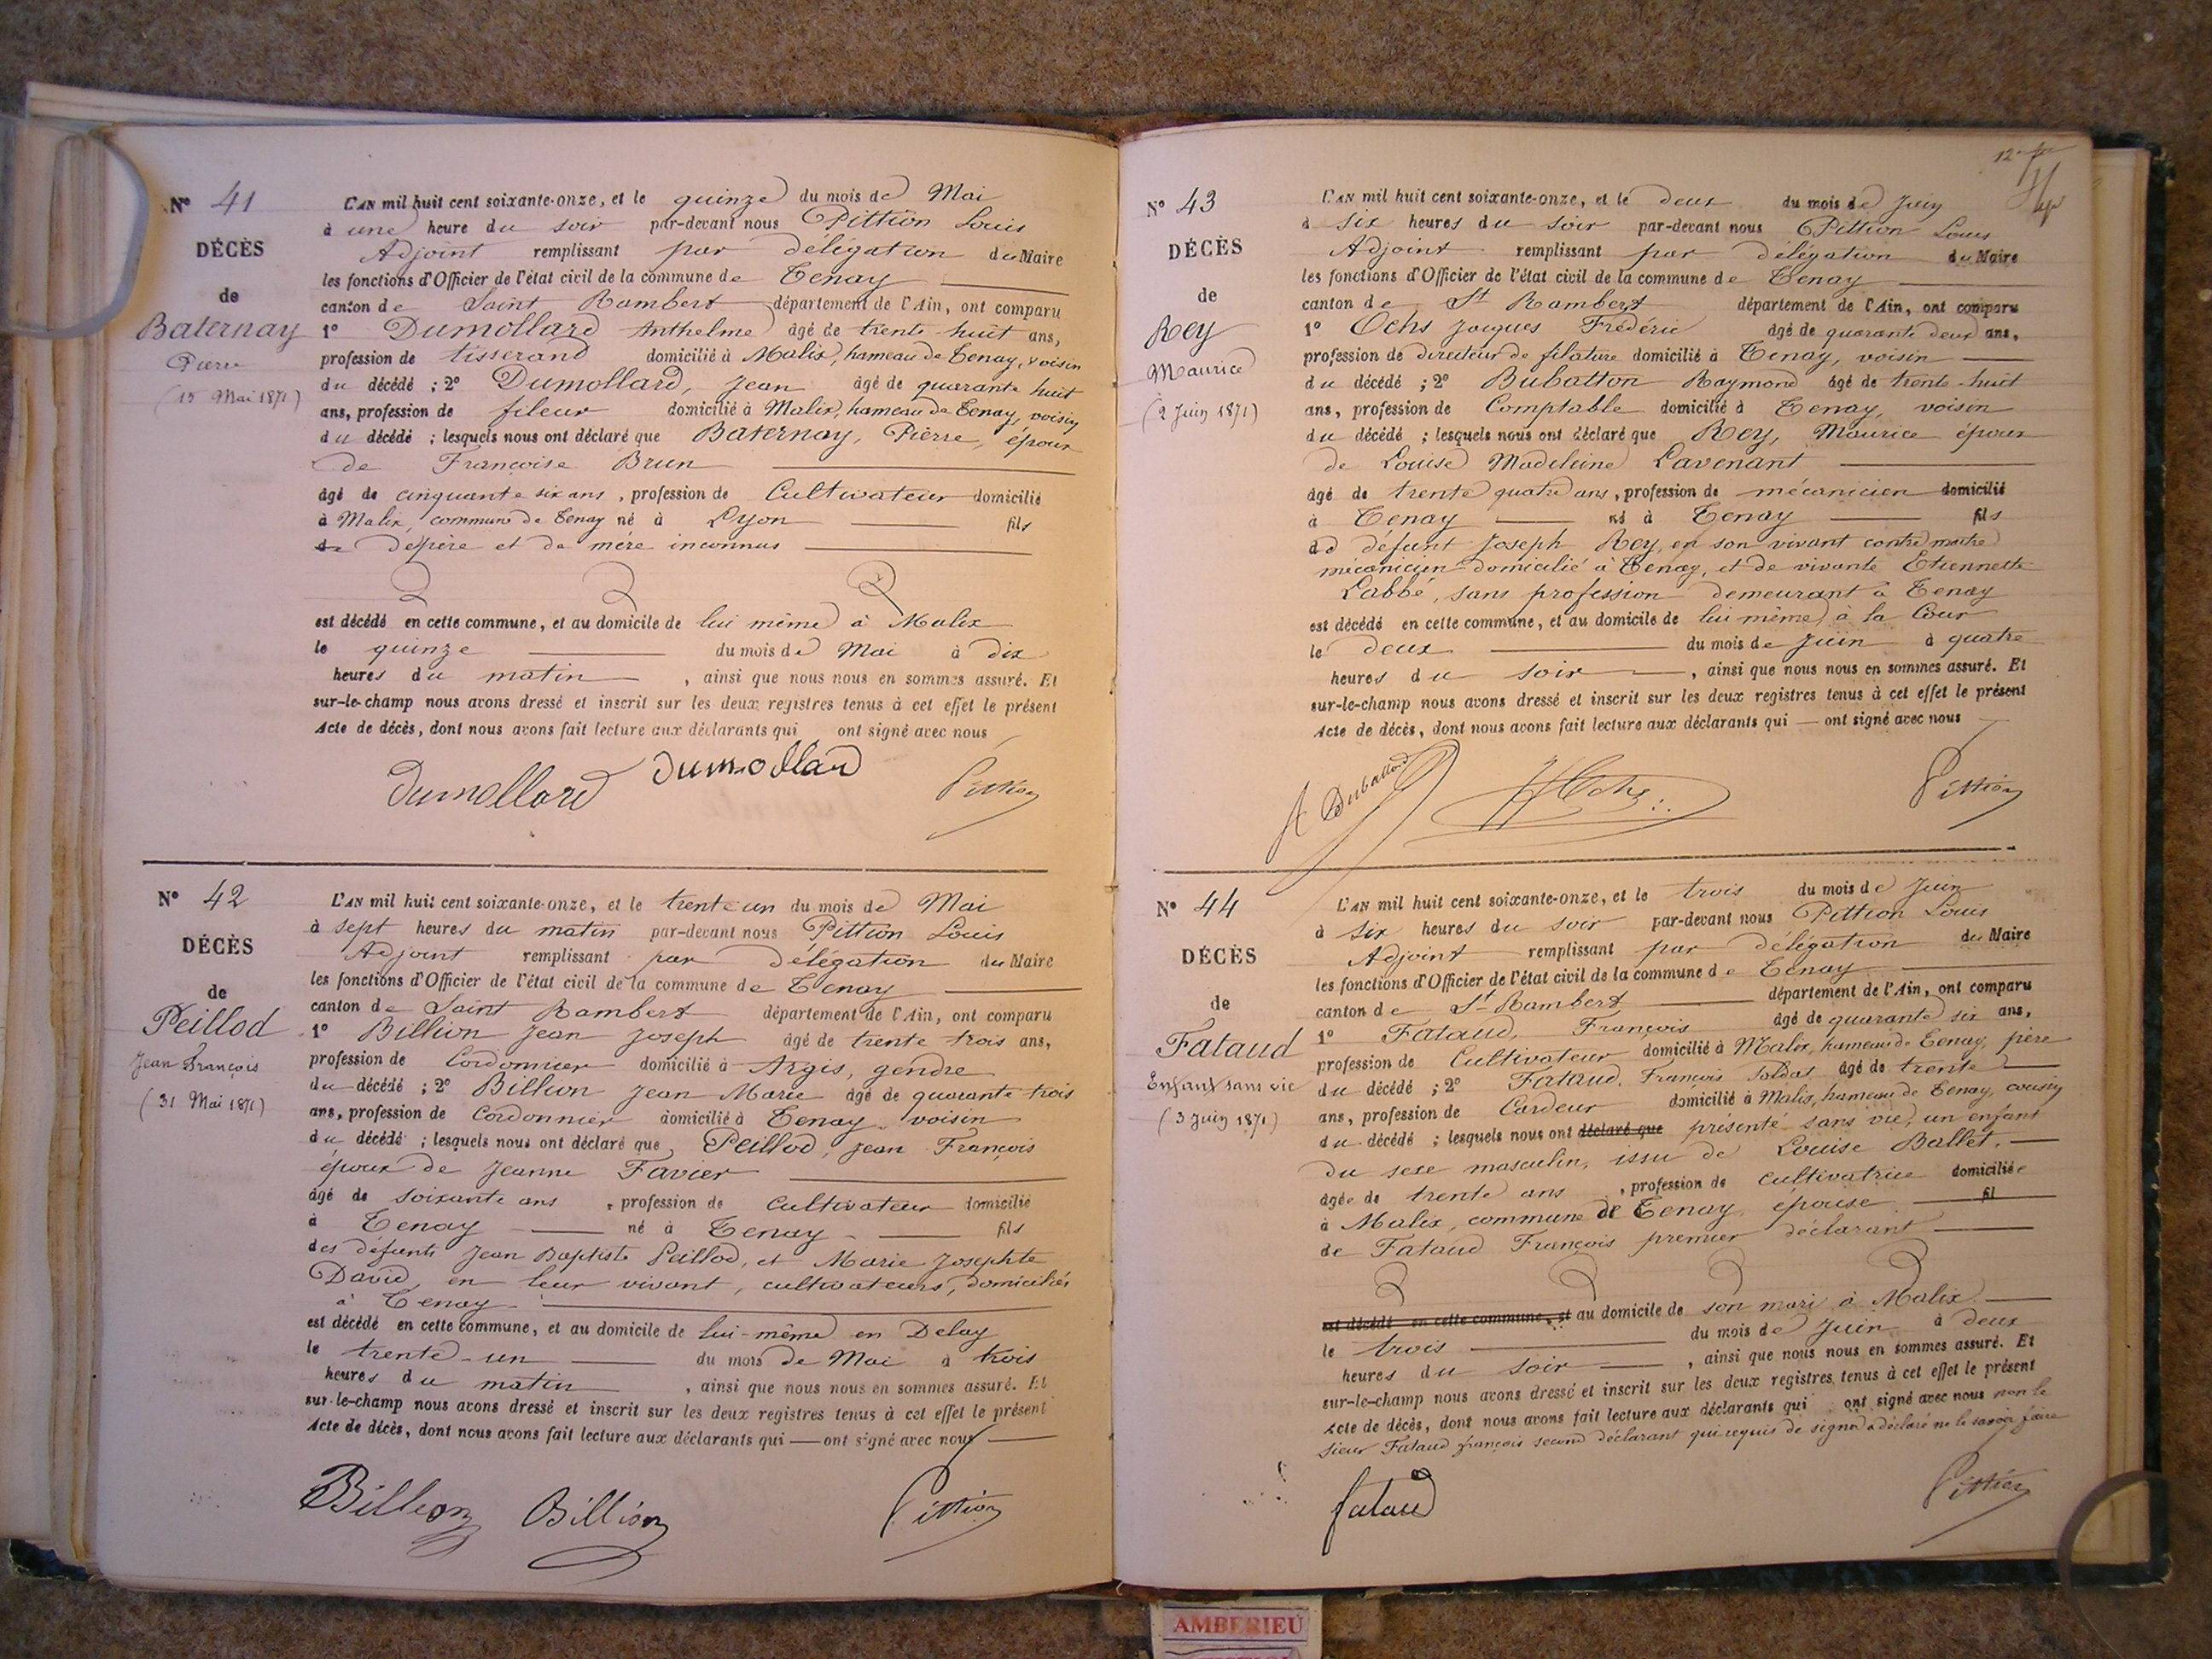 Nº 41
DÉCÈS
de
Baternay
Pierre
(15 Mai 1871)
L'AN mil huit cent soixante-onze, et le quinze du mois de Mai
à une heure du soir par-devant nous Pittion Louis
Adjoint remplissant par délégation du Maire
les fonctions d'Officier de l'état civil de la commune de Tenay
canton de Saint Rambert département de l'Ain, ont comparu
1º Dumollard Anthelme âgé de trente huit ans,
profession de tisserand domicilié à Malix, hameau de Tenay, voisin
du décédé ; 2º Dumollard, Jean âgé de quarante huit
ans, profession de fileur domicilié à Malix, hameau de Tenay, voisin
du décédé ; lesquels nous ont déclaré que Baternay, Pierre, époux
de Françoise Brun
âgé de cinquante six ans, profession de Cultivateur domicilié
à Malix, commune de Tenay né à Lyon fils
de depère et de mère inconnus
est décédé en cette commune, et au domicile de lui même à Malix
le quinze du mois de Mai à dix
heures du matin, ainsi que nous nous en sommes assuré. Et
sur-le-champ nous avons dressé et inscrit sur les deux registres tenus à cet effet le présent
Acte de décès, dont nous avons fait lecture aux déclarants qui ont signé avec nous
Dumollard Dumollard Pittion
Nº 42
DÉCÈS
de
Peillod
Jean François
(31 Mai 1871)
L'AN mil huit cent soixante-onze, et le trente un du mois de Mai
à sept heures du matin par-devant nous Pittion Louis
Adjoint remplissant par délégation du Maire
les fonctions d'Officier de l'état civil de la commune de Tenay
canton de Saint Rambert département de l'Ain, ont comparu
1º Billion Jean Joseph âgé de trente trois ans,
profession de Cordonnier domicilié à Argis, gendre
du décédé ; 2º Billion Jean Marie âgé de quarante trois
ans, profession de Cordonnier domicilié à Tenay voisin
du décédé ; lesquels nous ont déclaré que Peillod, Jean François
époux de Jeanne Favier
âgé de soixante ans, profession de Cultivateur domicilié
à Tenay né à Tenay fils
des défunts Jean Baptiste Peillod, et Marie Josephte
David, en leur vivant, cultivateurs, domiciliés
à Tenay
est décédé en cette commune, et au domicile de lui-même en Delay
le trente-un du mois de Mai à trois
heures du matin, ainsi que nous nous en sommes assuré. Et
sur-le-champ nous avons dressé et inscrit sur les deux registres tenus à cet effet le présent
Acte de décès, dont nous avons fait lecture aux déclarants qui ont signé avec nous
Billion Billion Pittion
12e
Nº 43
DÉCÈS
de
Rey
Maurice
(2 Juin 1871)
L'AN mil huit cent soixante-onze, et le deux du mois de Juin
à six heures du soir par-devant nous Pittion Louis
Adjoint remplissant par délégation du Maire
les fonctions d'Officier de l'état civil de la commune de Tenay
canton de St Rambert département de l'Ain, ont comparu
1º Ochs Jacques Frédéric âgé de quarante deux ans,
profession de directeur de filature domicilié à Tenay, voisin
du décédé ; 2º Bubatton Raymond âgé de trente-huit
ans, profession de Comptable domicilié à Tenay, voisin
du décédé ; lesquels nous ont déclaré que Rey, Maurice époux
de Louise Madeleine Lavenant
âgé de trente quatre ans, profession de mécanicien domicilié
à Tenay né à Tenay fils
de défunt Joseph Rey, en son vivant contre maitre
mécanicien domicilié à Tenay, et de vivante Etiennette
Labbé, sans profession demeurant à Tenay
est décédé en cette commune, et au domicile de lui même à la Cour
le deux du mois de Juin à quatre
heures du soir, ainsi que nous nous en sommes assuré. Et
sur-le-champ nous avons dressé et inscrit sur les deux registres tenus à cet effet le présent
Acte de décès, dont nous avons fait lecture aux déclarants qui ont signé avec nous
Ochs Pittion
Nº 44
DÉCÈS
de
Fataud
Enfant sans vie
(3 Juin 1871)
L'AN mil huit cent soixante-onze, et le trois du mois de Juin
à six heures du soir par-devant nous Pittion Louis
Adjoint remplissant par délégation du Maire
les fonctions d'Officier de l'état civil de la commune de Tenay
canton de St Rambert département de l'Ain, ont comparu
1º Fataud, François âgé de quarante six ans,
profession de Cultivateur domicilié à Malix, hameau de Tenay, père
du décédé ; 2º Fataud, François Soldat âgé de trente
ans, profession de Cardeur domicilié à Malix, hameau de Tenay, cousin
du décédé ; lesquels nous ont déclaré que présenté sans vie, un enfant
du sexe masculin, issu de Louise Ballet,
âgée de trente ans, profession de cultivatrice domiciliée
à Malix, commune de Tenay, épouse fil
de Fataud François premier déclarant
est décédé en cette commune, et au domicile de son mari à Malix
le trois du mois de Juin à deux
heures du soir, ainsi que nous nous en sommes assuré. Et
sur-le-champ nous avons dressé et inscrit sur les deux registres tenus à cet effet le présent
Acte de décès, dont nous avons fait lecture aux déclarants qui ont signé avec nous non le
sieur Fataud françois second déclarant qui requis de signer a déclaré ne le savoir faire
fataud Pittion
AMBERIEU